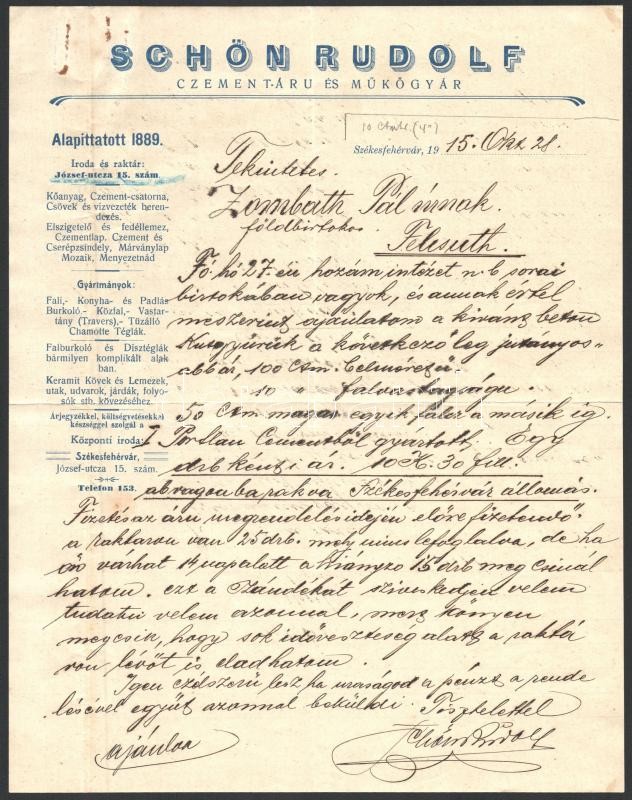 SCHÖN RUDOLF
CZEMENT-ÁRU ÉS MŰKŐGYÁR
Alapittatott 1889.
Iroda és raktár:
József-utcza 15. szám.
Kőanyag, Czement-csatorna,
Csövek és vizvezeték beren-
dezés.
Elszigetelő és fedéllemez,
Czementlap. Czement és
Cserépzsindely, Márványlap
Mozaik, Menyezetnád
Gyártmányok:
Fali,- Konyha- és Padlás
Burkoló.- Közfal,- Vastar-
tány (Travers),- Tüzálló
Chamotte Téglák.
Falburkoló és Disztéglák
bármilyen komplikált alak
ban.
Keramit Kövek és Lemezek,
utak, udvarok, járdák, folyo-
sók stb. kövezéséhez.
Árjegyzékkel, költségvetésekkel
készséggel szolgál a
Központi iroda:
Székesfehérvár,
József-utcza 15. szám.
Telefon 153.
Székesfehérvár, 1915. Okt 28.
Tekintetes
Zombath Pál úrnak
földbirtokos
Felcsuth.
Fó hó 27.én hozám intézet n.b. sorai
birtokában vagyok, és annak értel
meszerint ajánlatom a kivant beton
Kutgyürük a következő leg jutányos-
abb ár, 100 Ctm. belméretü
10 " falvastagságu
50 Ctm magas egyik falez a másik ig.
I Portlan Cementből gyártott. Egy
drb készi ár. 10 K. 30 fill.
ab vagonba rakva Székesfehérvár állomás.
Fizetés az áru megrendelés idején előre fizetendő
a raktáron van 25 drb. mely nincs lefoglalva, de ha
ön várhat 14 nap alatt a hiányzo 15 drb meg csinál
hatom. ezt a szándékát sziveskedjen velem
tudatni velem azonnal, mert könyen
megesik, hogy sok idöveszteség alatt a raktá
ron lévőt is eladhatom.
Igen czélszerü lesz ha uraságod a pénzt a rende
lésével együt azonnal beküldi. Tisztelettel
ajánlva
Schön Rudolf